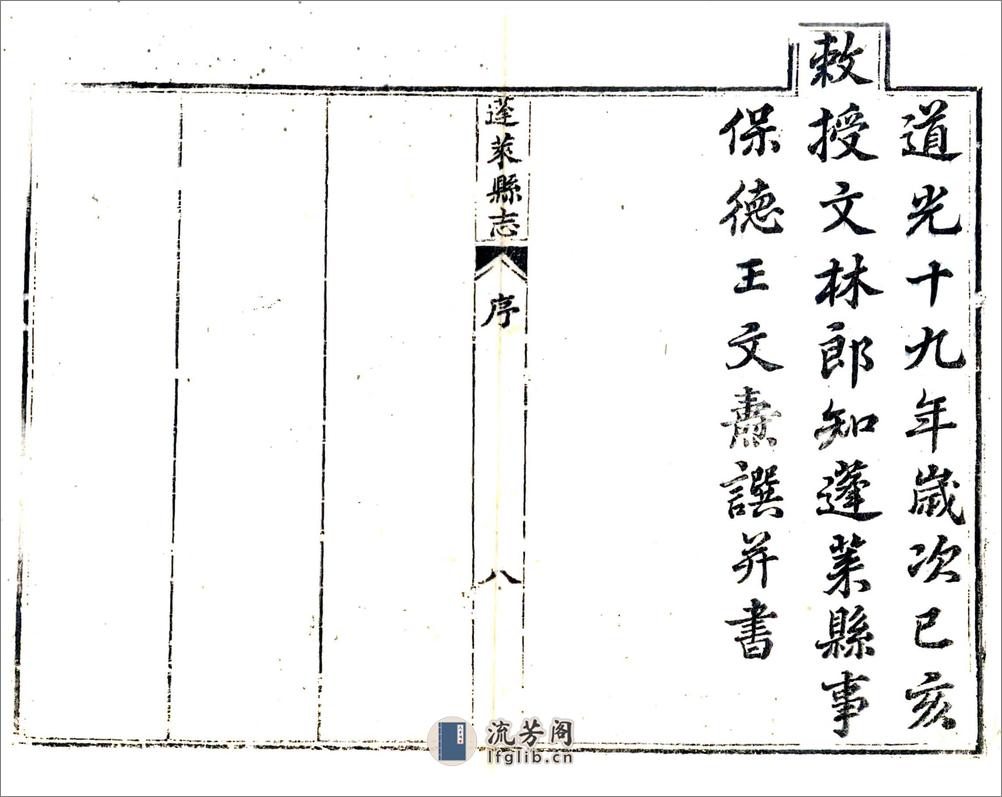 道光十九年歲次己亥
敕授文林郎知蓬萊縣事
保德王文燾譔并書
蓬萊縣志
序
八
流芳阁
lfglib.cn